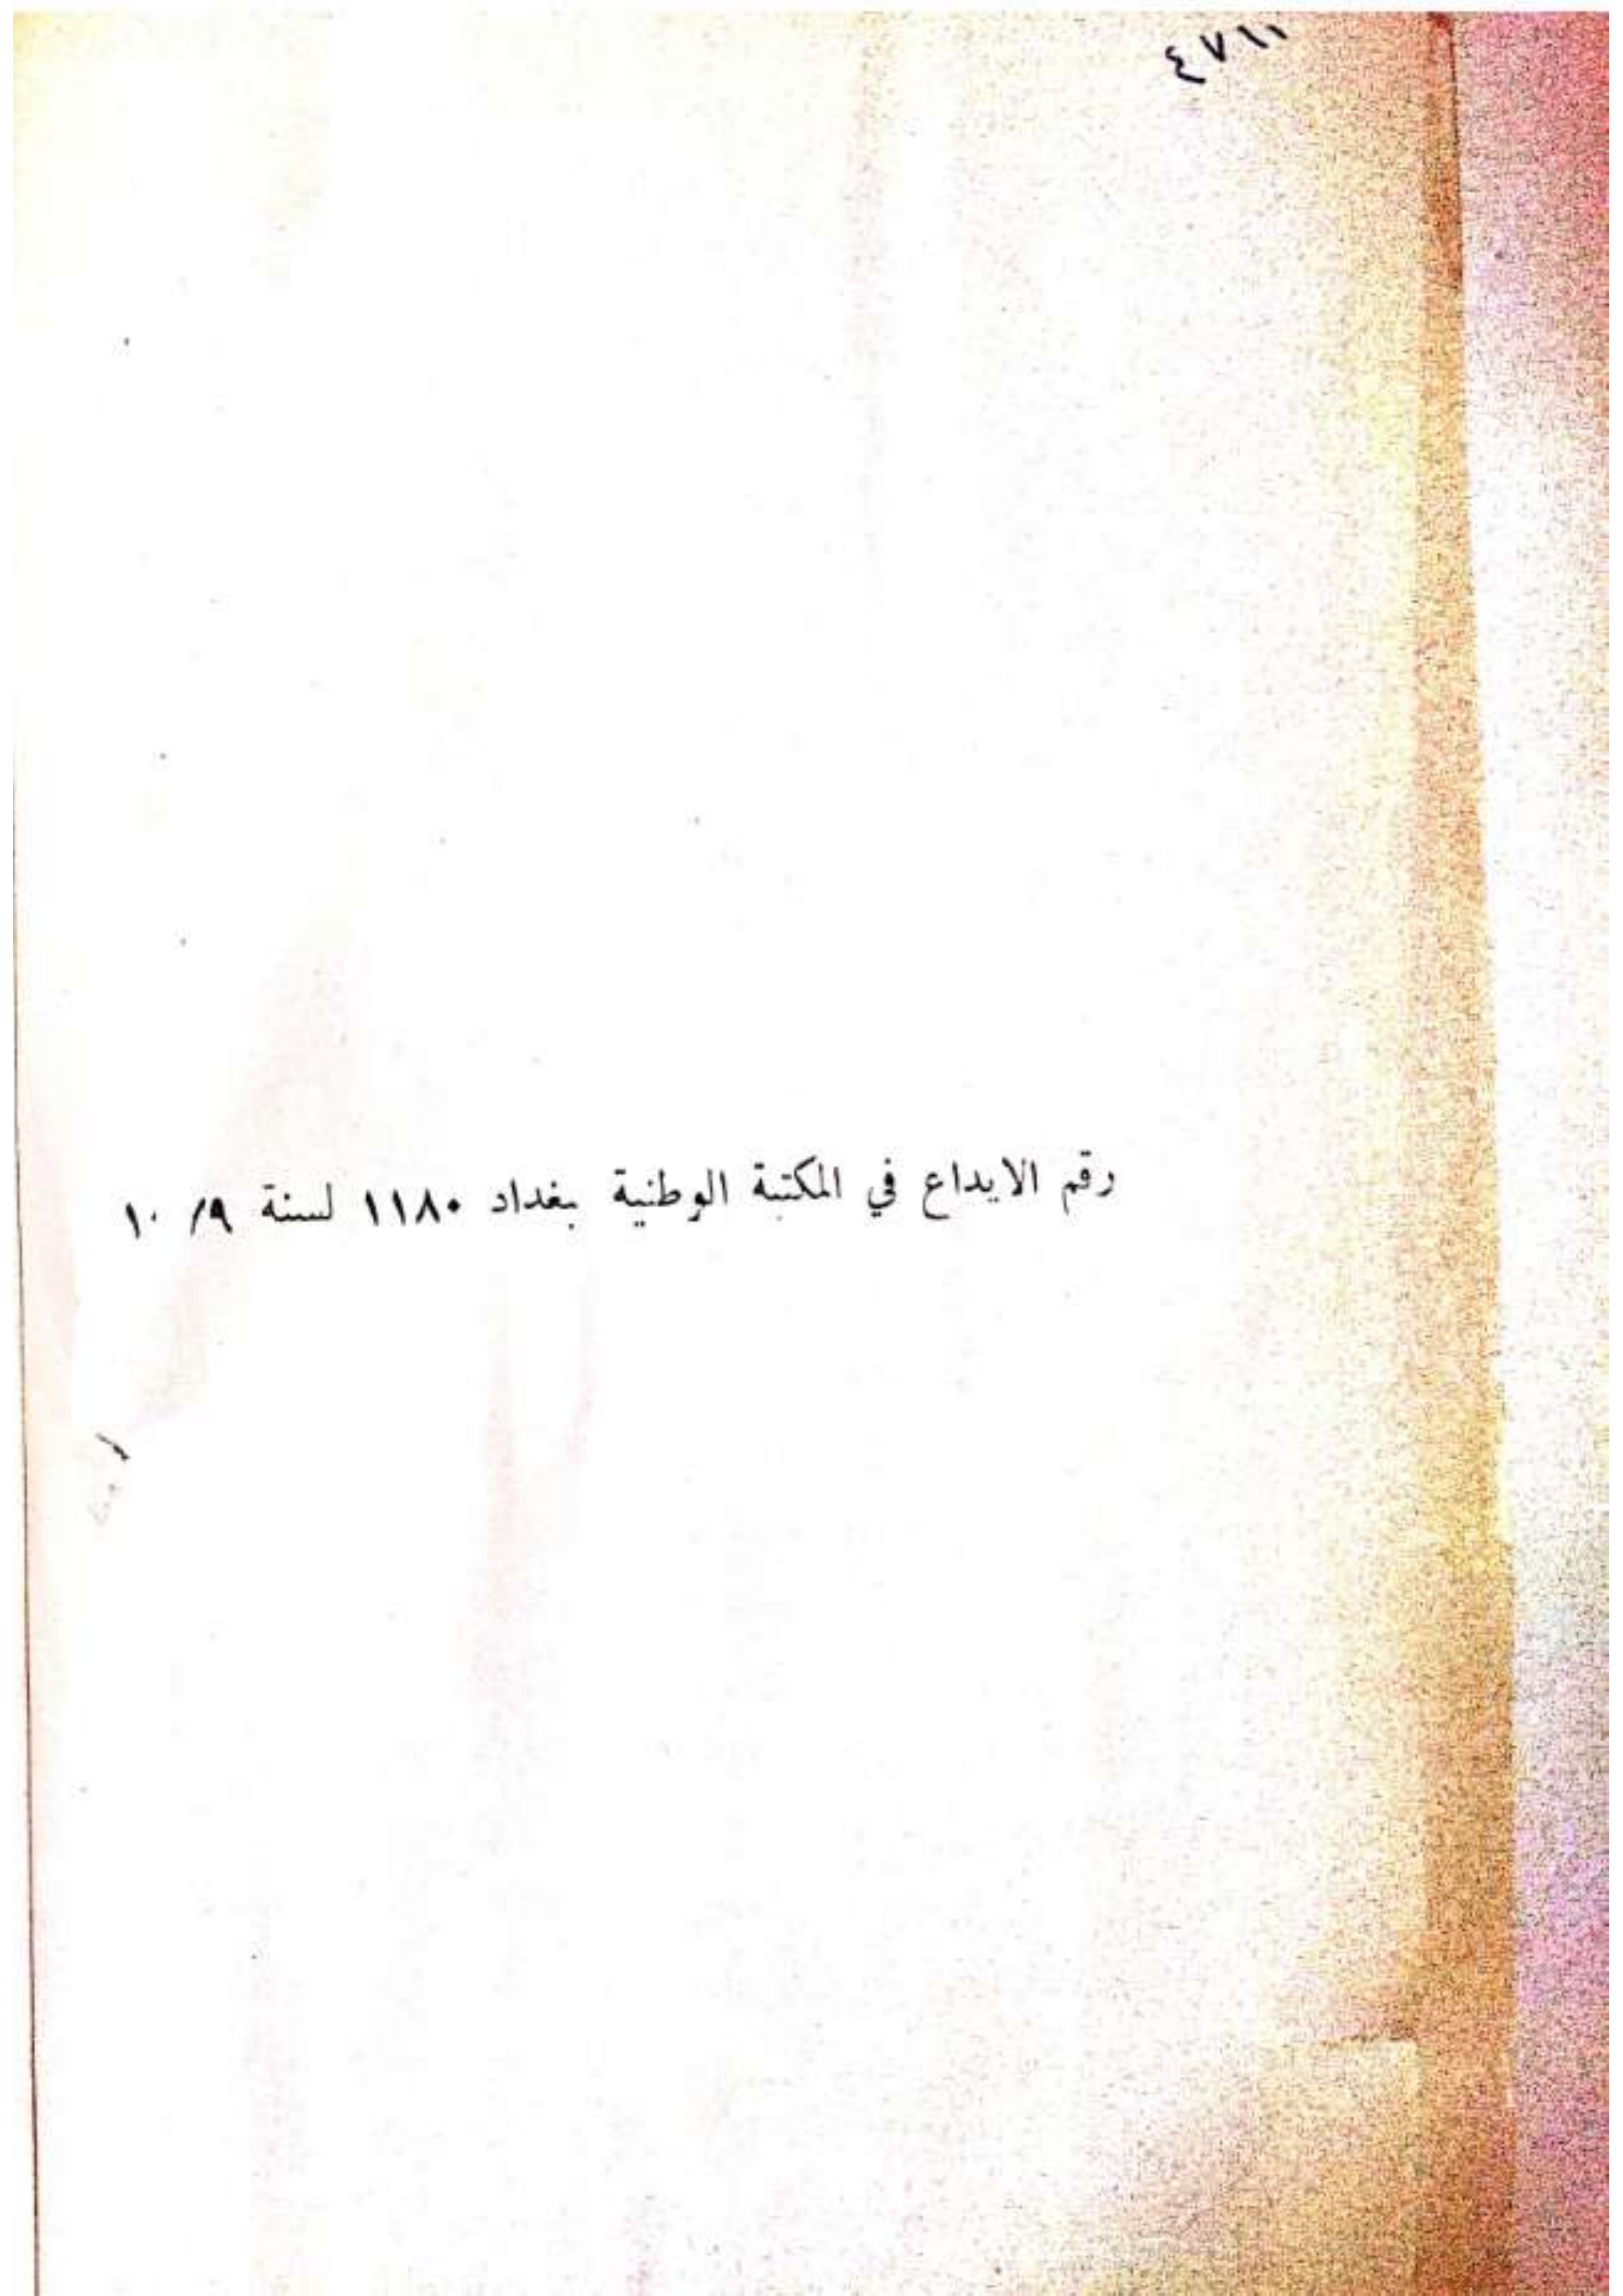 ٤٧١١
رقم الايداع في المكتبة الوطنية بغداد ١١٨٠ لسنة ٩/ ١٠